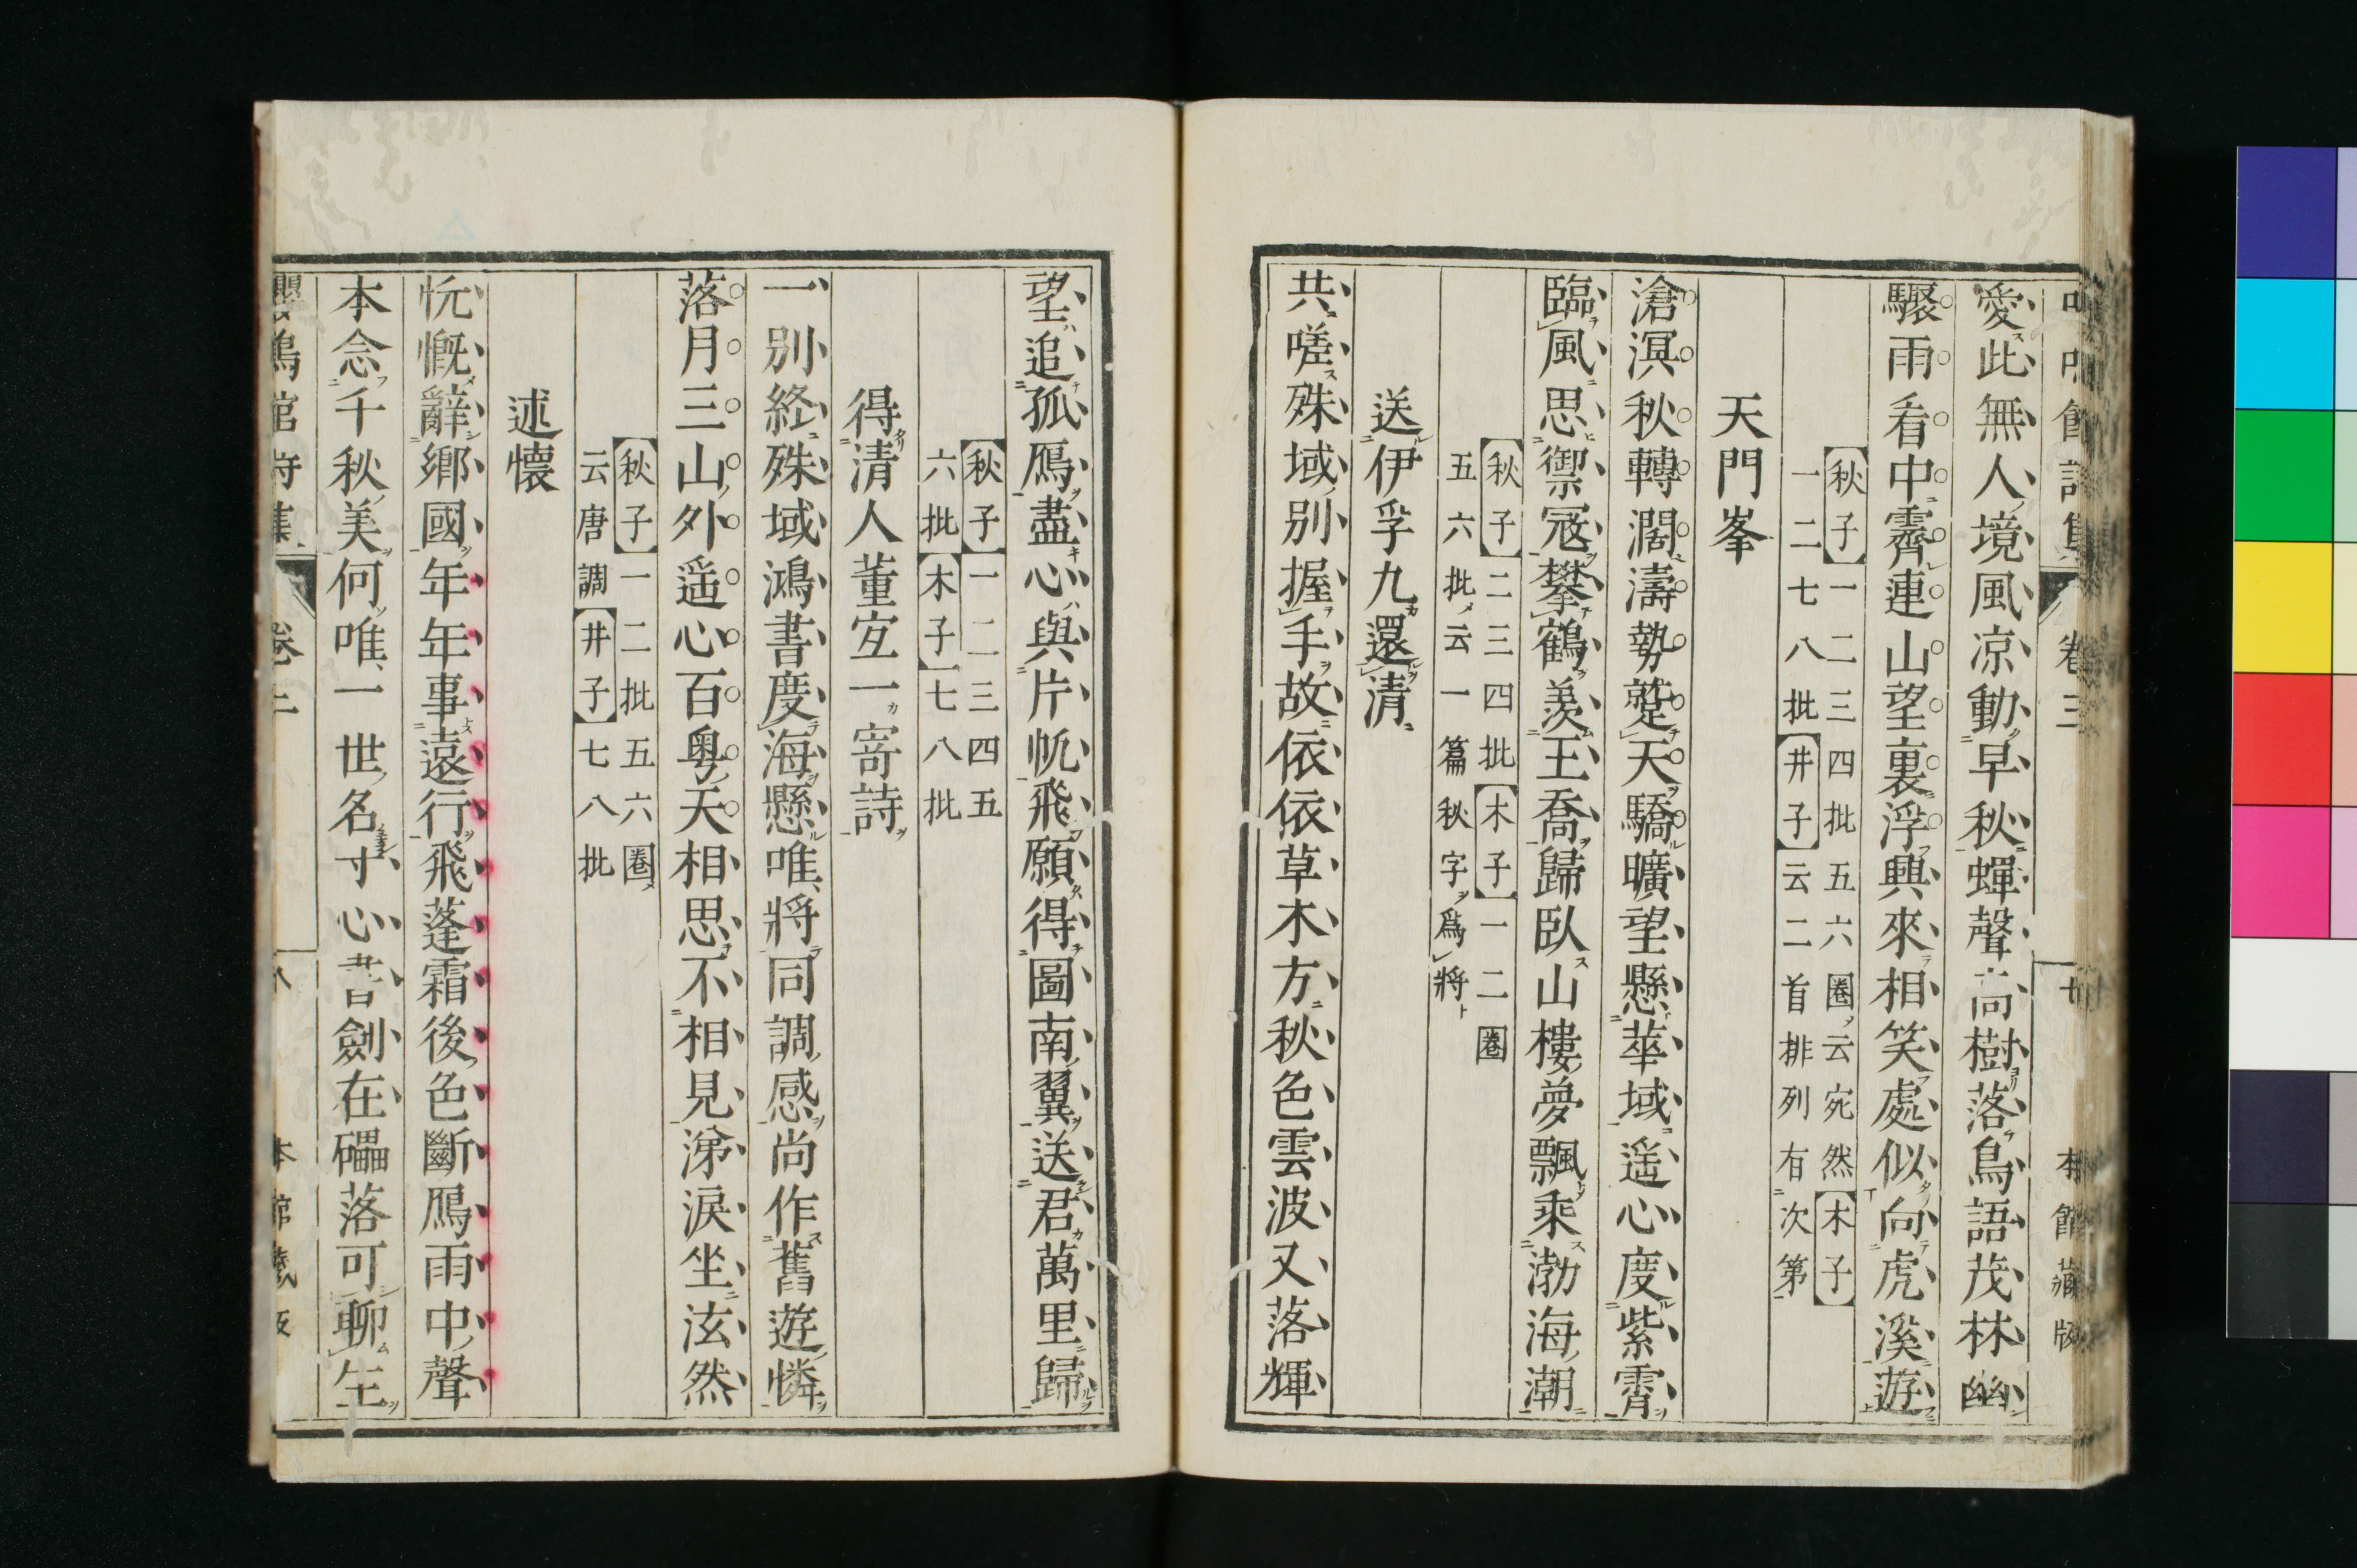 愛此無人境風凉動早秋蟬聲高樹落鳥語茂林幽
驟雨看中霽連山望裏浮興來相笑處似向虎溪遊
【秋子】一二三四批五六圈云宛然【木子】
一二七八批【井子】云二首排列有次第
天門峯
滄溟秋轉濶濤勢蹵天驕曠望懸華域遥心度紫霄
臨風思禦冦攀鶴羨王喬歸臥山樓夢飄乘渤海潮
【秋子】二三四批【木子】一二圈
五六批云一篇秋字爲將
送伊孚九還清
共嗟殊域別握手故依依草木方秋色雲波又落輝
卷三
本館藏版
望追孤鴈盡心與片帆飛願得圖南翼送君萬里歸
【秋子】一二三四五
六批【木子】七八批
得清人董宐一寄詩
一別終殊域鴻書度海懸唯將同調感尚作舊遊憐
落月三山外遥心百粤天相思不相見涕淚坐泫然
【秋子】一二批五六圈
云唐調【井子】七八批
述懷
忼慨辭鄉國年年事遠行飛蓬霜後色斷鴈雨中聲
本念千秋美何唯一世名寸心書劍在礧落可聊生